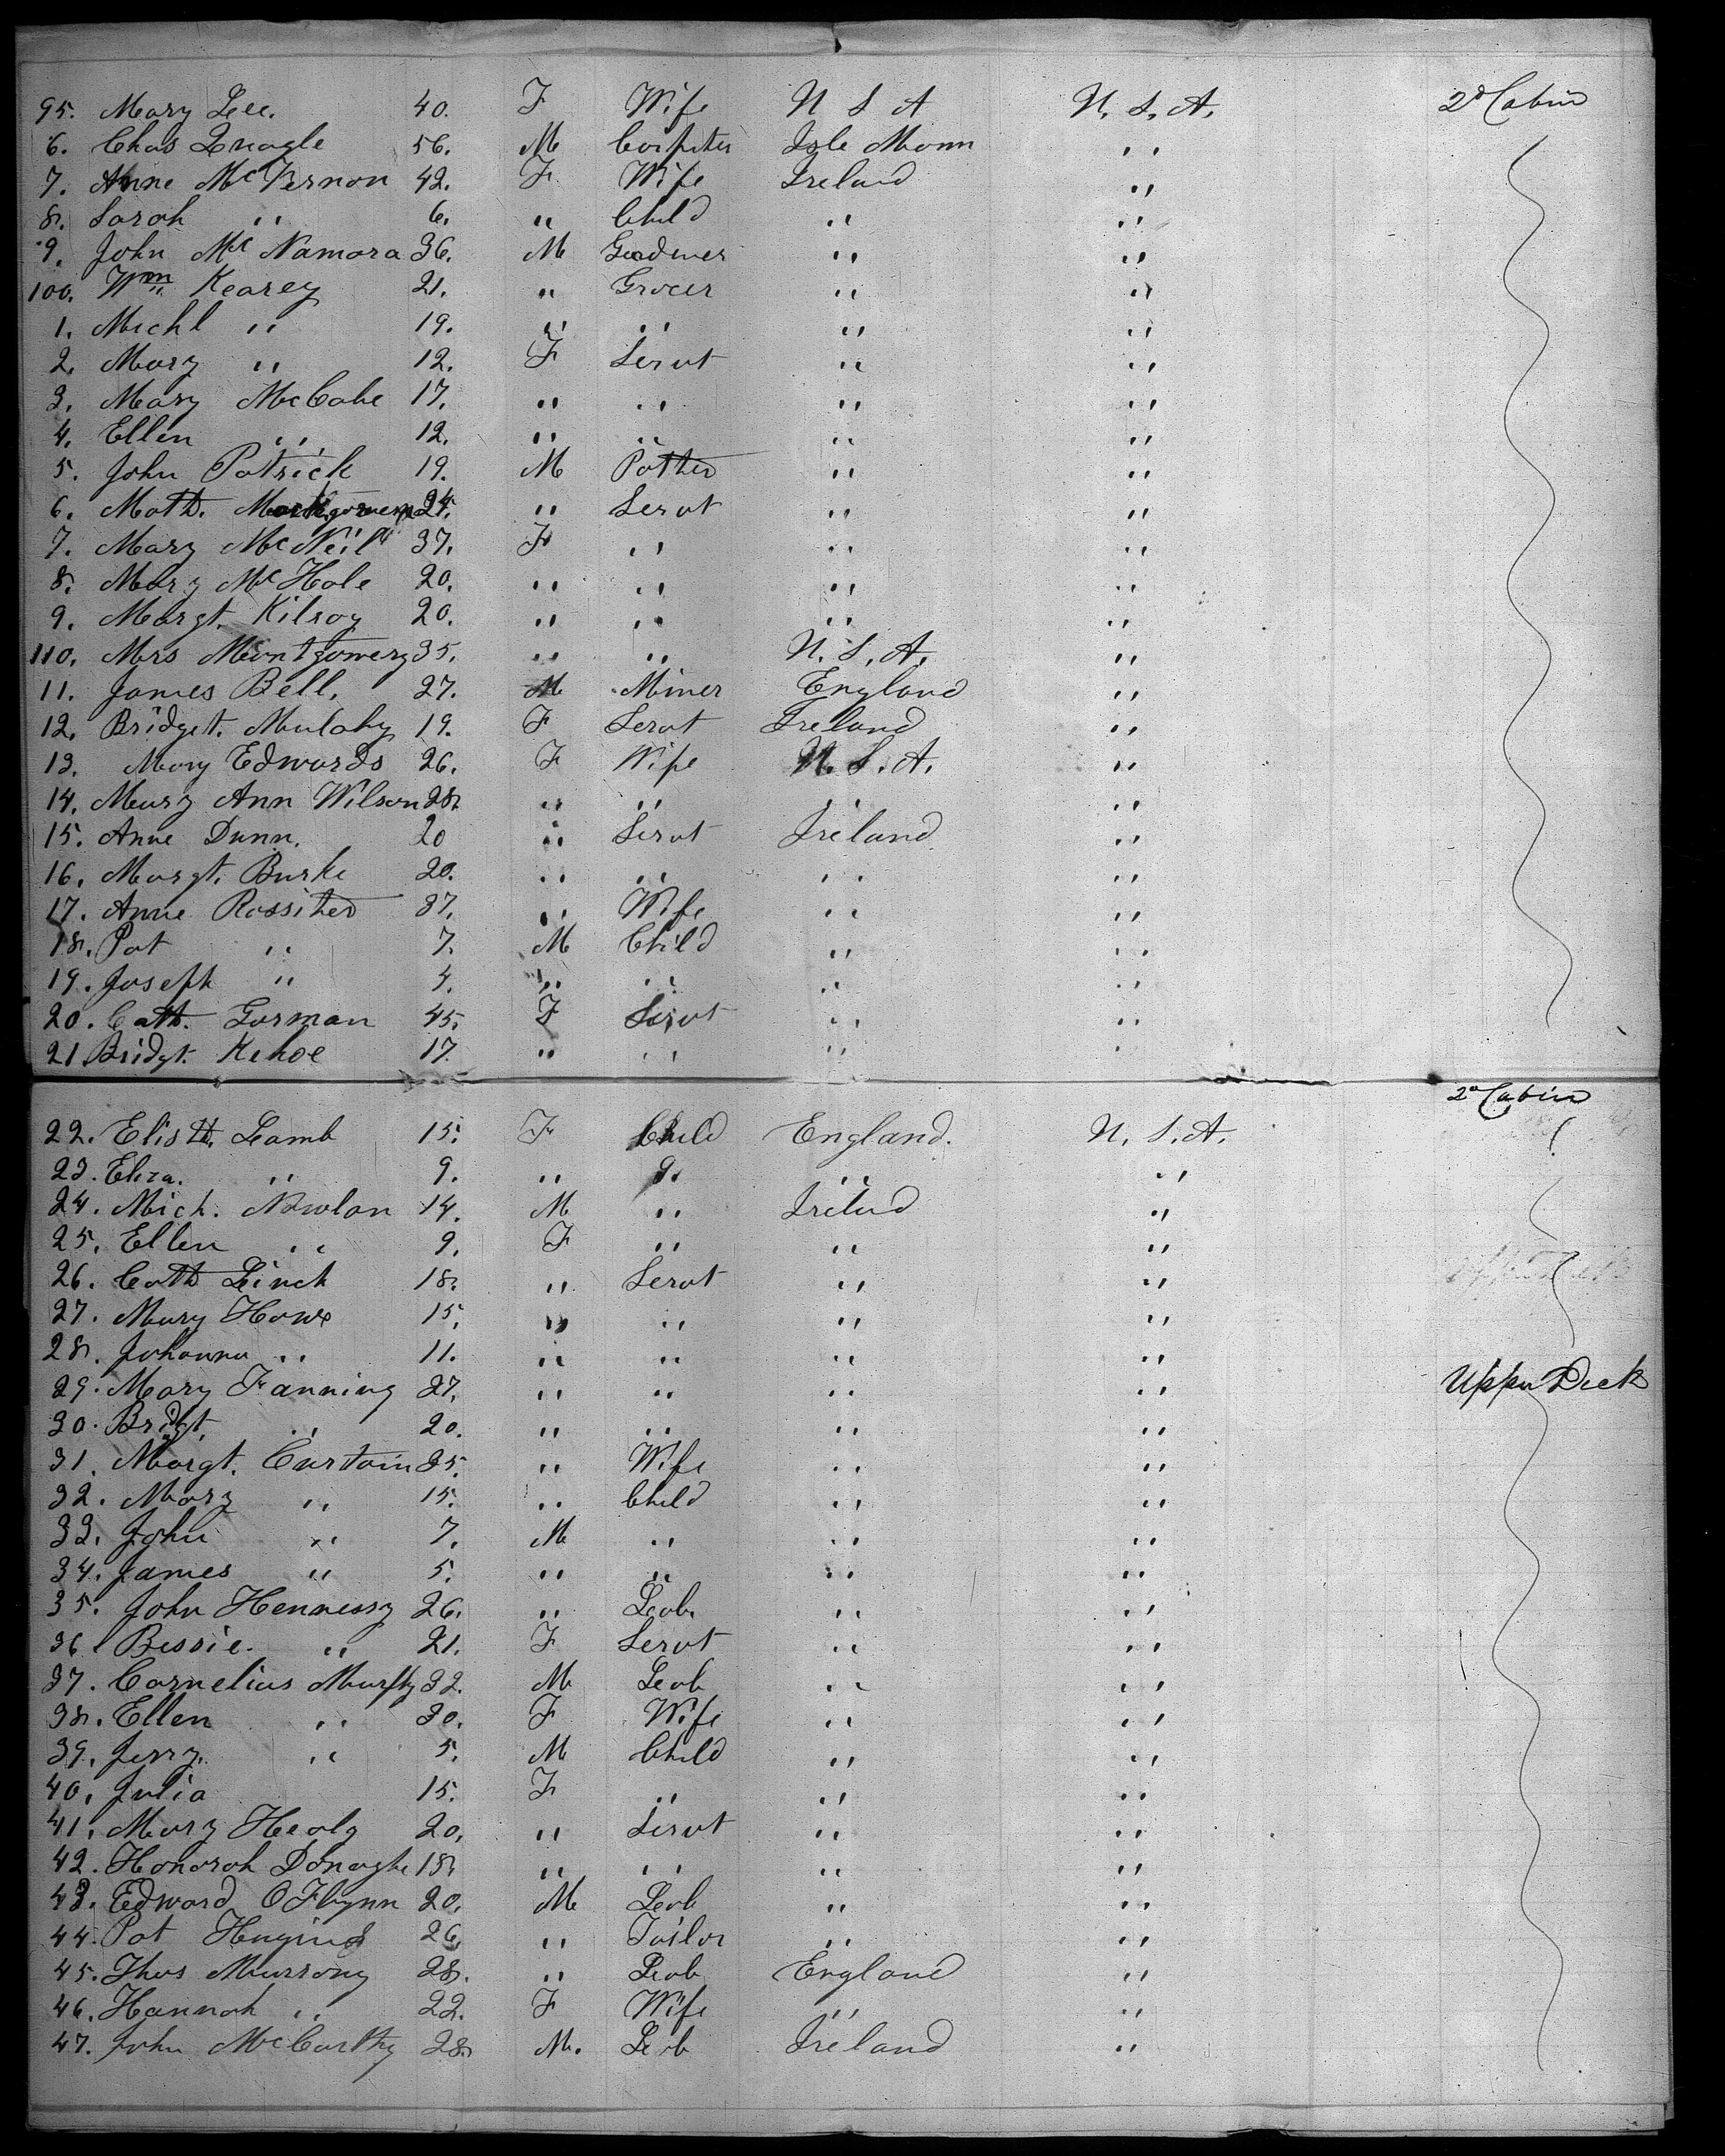 95. Mary Lee. 40. F Wife U S A U. S. A. 2d Cabin
6. Chas Quagle 56. M Carpnter Isle Mann " "
7. Anne McVernon 42. F Wife Ireland "
8. Sarah " 6. " Child " "
9. John McNamara 36. M Gardner " "
100. Wm Kearey 21. " Grocer " "
1. Michl " 19. " " " "
2. Mary " 12. F Servt " "
3. Mary McCabe 17. " " " "
4. Ellen " 12. " " " "
5. John Patrick 19. M Potter " "
6. Math. Montgomery 24. " Servt " "
7. Mary McNeil 37. F " " "
8. Mary McHale 20. " " " "
9. Margt. Kilroy 20. " " " "
110. Mrs Montgomery 35. " " U. S. A. "
11. James Bell. 27. M Miner England "
12. Bridget. Mulahy 19. F Servt Ireland "
13. Mary Edwards 26. F Wife U. S. A. "
14. Mary Ann Wilson 28. " " " "
15. Anne Dunn. 20 " Servt Ireland "
16. Margt. Burke 20. " " " "
17. Anne Rossiter 37. " Wife " "
18. Pat " 7. M Child " "
19. Joseph " 4. " " " "
20. Cath. Gorman 45. F Servt " "
21 Bridgt. Kehoe 17. " " " "
2d Cabin
22. Elisth. Lamb 15. F Child England. U. S. A.
23. Eliza. " 9. " " " "
24. Mich. Nowlan 14. M " Irelnd "
25. Ellen " 9. F " " "
26. Cath Linch 18. " Servt " "
27. Mary Howe 15. " " " "
28. Johanna " 11. " " " "
29. Mary Fanning 27. " " " " Upper Deck
30. Bridgt. " 20. " " " "
31. Margt. Curtain 35. " Wife " "
32. Mary " 15. " Child " "
33. John " 7. M " " "
34. James " 5. " " " "
35. John Hennessy 26. " Lab. " "
36 Bessie. " 21. F Servt " "
37. Cornelius Murphy 32. M Lab " "
38. Ellen " 30. F Wife " "
39. Jerry. " 5. M Child " "
40. Julia 15. F " " "
41. Mary Healy 20. " Servt " "
42. Honorah Donaghe 18. " " " "
43. Edward OFlynn 20. M Lab " "
44. Pat Hugins 26. " Tailor " "
45. Thos Murrony 28. " Lab England "
46. Hannah " 22. F Wife " "
47. John McCarthy 28. M. Lab Ireland "